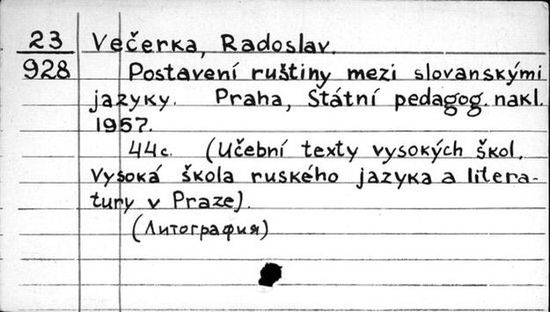 23
928
Večerka, Radoslav.
Postavení ruštiny mezi slovanskými
jazyky. Praha, Státní pedagog. nakl.
1957.
44 c. (Učební texty vysokých škol.
Vysoká škola ruského jazyka a litera-
tury v Praze).
(Литография)